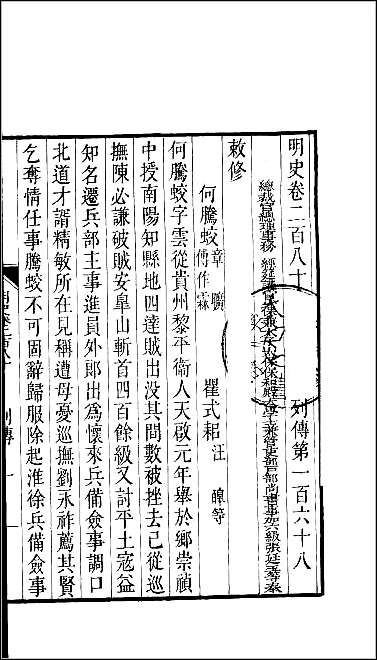 明史卷二百八十 列傳第一百六十八
總裁官總理事務 經筵講官 張廷玉等奉
敕修
何騰蛟 章曠 傅作霖 瞿式耜 汪皞等
何騰蛟字雲從貴州黎平衞人天啟元年舉於鄉崇禎
中授南陽知縣地四達賊出没其間數被挫去已從巡
撫陳必謙破賊安臯山斬首四百餘級又討平土寇益
知名遷兵部主事進員外郎出爲懷來兵備僉事調口
北道才諝精敏所在見稱遭母憂巡撫劉永祚薦其賢
乞奪情任事騰蛟不可固辭歸服除起淮徐兵備僉事
列傳 一